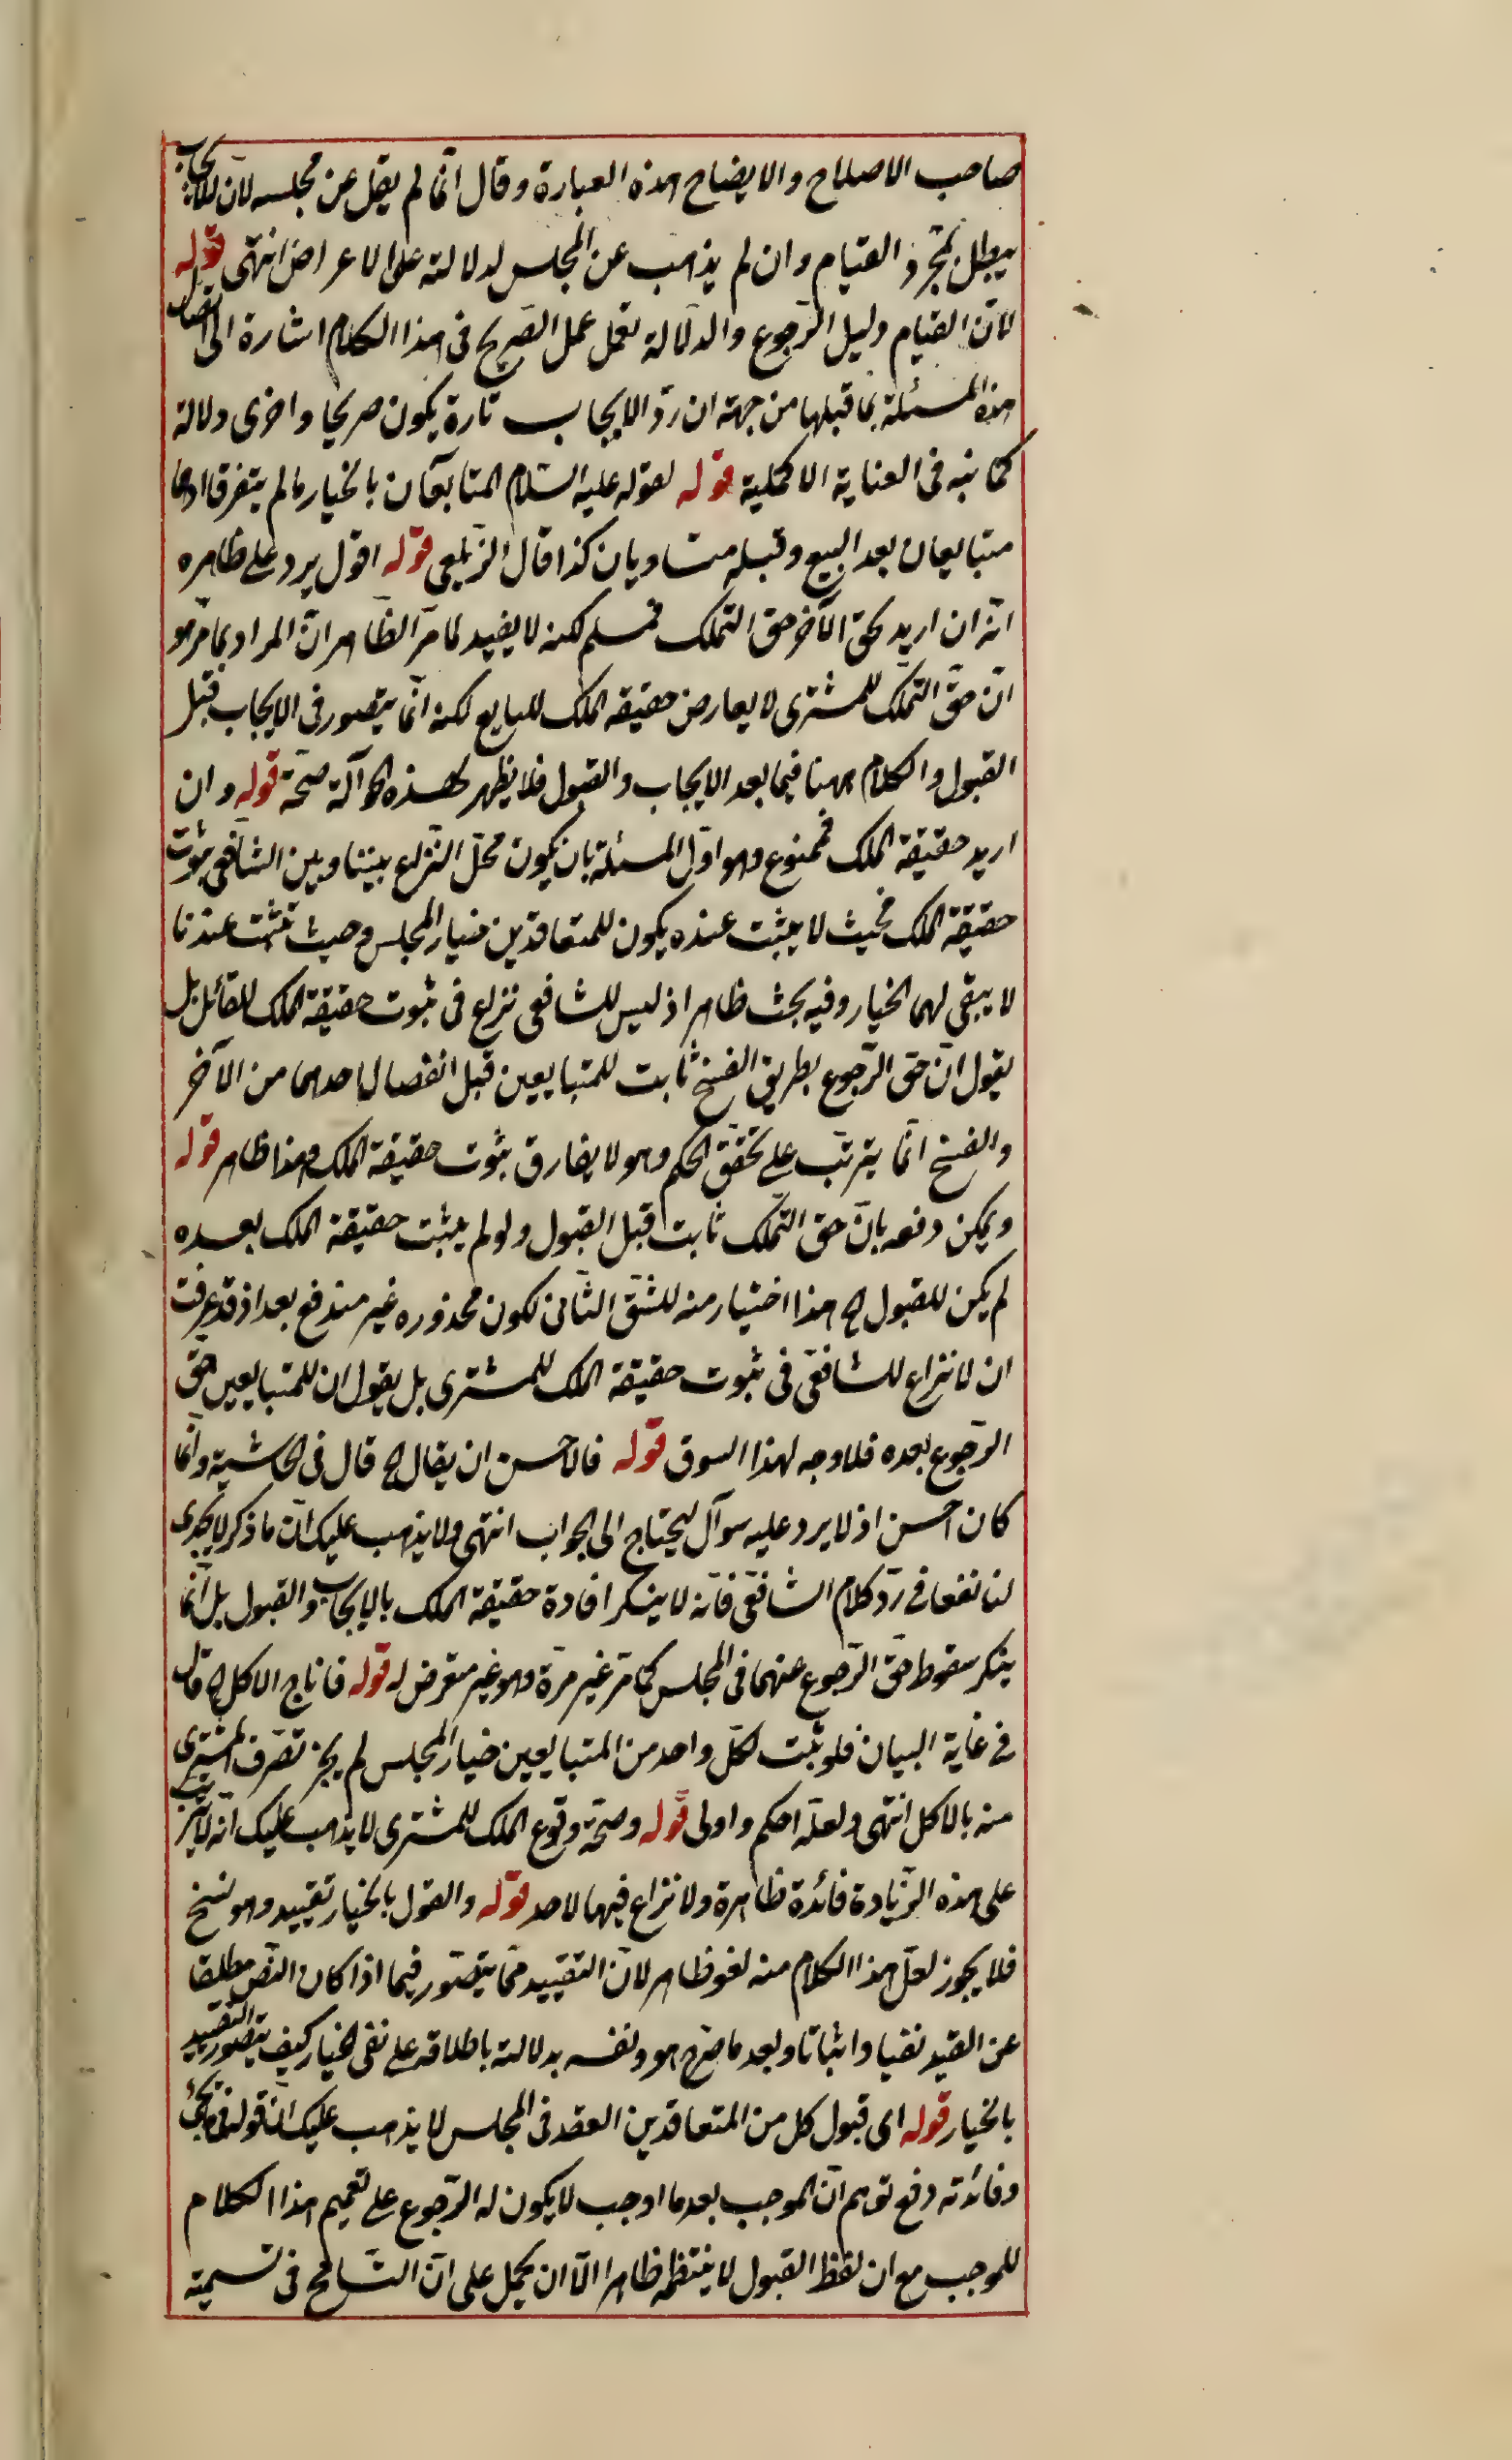 صاحب الاصلاح والايضاح هذه العبارة وقال انما لم يقل عن مجلسه لان الايجاب
يبطل بمجرد القيام وان لم يذهب عن المجلس لدلالته على الاعراض انتهى قوله
لان القيام دليل الرجوع والدلالة تعمل عمل الصريح فى هذا الكلام اشارة الى اتصال
هذه المسئلة بما قبلها من جهة ان ردّ الايجاب تارة يكون صريحا واخرى دلالة
كما نبه فى العناية الاكملية قوله لقوله عليه السلام المتبايعان بالخيار مالم يتفرقا اذ هما
متبايعان بعد البيع وقبله متساويان كذا قال الزيلعى قوله اقول يرد على ظاهره
انه ان اريد بحق الآخر حق التملك فمسلم لكنه لا يفيد لما مرّ الظاهر ان المراد بما مرّ هو
انّ حقّ التملك للمشترى لا يعارض حقيقة الملك للبايع لكنه انما يتصور فى الايجاب قبل
القبول والكلام ههنا فيما بعد الايجاب والقبول فلا يظهر لهذه الحوآلة صحّة قوله وان
اريد حقيقة الملك فممنوع وهو اوّل المسئلة بان يكون محلّ النزاع بيننا وبين الشافعى ثبوت
حقيقة الملك فحيث لا يثبت عنده يكون للمتعاقدين خيار المجلس وحيث تثبت عندنا
لا يبقى لهما الخيار وفيه بحث ظاهر اذ ليس للشافعى نزاع فى ثبوت حقيقة الملك للقائل بل
يقول انّ حق الرجوع بطريق الفسخ ثابت للمتبايعين قبل انفصال احدهما من الآخر
والفسخ انما يترتب على تحقق الحكم وهو لا يفارق ثبوت حقيقة الملك وهذا ظاهر قوله
ويمكن دفعه بانّ حق التملك ثابت قبل القبول ولو لم يثبت حقيقة الملك بعده
لم يكن للقبول الخ هذا اختيار منه للشق الثانى لكون محذوره غير مندفع بعد اذ قد عرفت
ان لا نزاع للشافعى فى ثبوت حقيقة الملك للمشترى بل يقول ان للمتبايعين حقّ
الرجوع بعده فلا وجه لهذا السوق قوله فالاحسن ان يقال الخ قال فى الحاشية وانما
كان احسن اذ لا يرد عليه سوآل ليحتاج الى الجواب انتهى ولا يذهب عليك انّ ما ذكر لا يجدى
لنا نفعا فى ردّ كلام الشافعى فانه لا ينكر افادة حقيقة الملك بالايجاب والقبول بل انما
ينكر سقوط حقّ الرجوع عنهما فى المجلس كما مرّ غير مرّة وهو غير متعرض له قوله فاناج الاكل الخ قال
فى غاية البيان فلو ثبت لكل واحد من المتبايعين خيار المجلس لم يجز تصرف المشترى
منه بالاكل انتهى ولعله احكم واولى قوله وصحّة وقوع الملك للمشترى لا يذهب عليك انه لا يترتب
على هذه الزيادة فائدة ظاهرة ولا نزاع فيها لاحد قوله والقول بالخيار تقييد وهو نسخ
فلا يجوز لعلّ هذا الكلام منه لغو ظاهر لانّ التقييد مما يتصور فيما اذا كان النص مطلقا
عن القيد نفيا واثباتا وبعد ما صرح هو ونفسه بدلالته باطلاقه على نفى الخيار كيف يتصور التقييد
بالخيار قوله اى قبول كل من المتعاقدين العقد فى المجلس لا يذهب عليك ان قوله
وفائدته دفع توهم انّ الموجب بعد ما اوجب لا يكون له الرجوع على تعميم هذا الكلام
للموجب مع ان لفظ القبول لا ينتظمه ظاهرا الّا ان يحمل على انّ التسامح فى تسمية